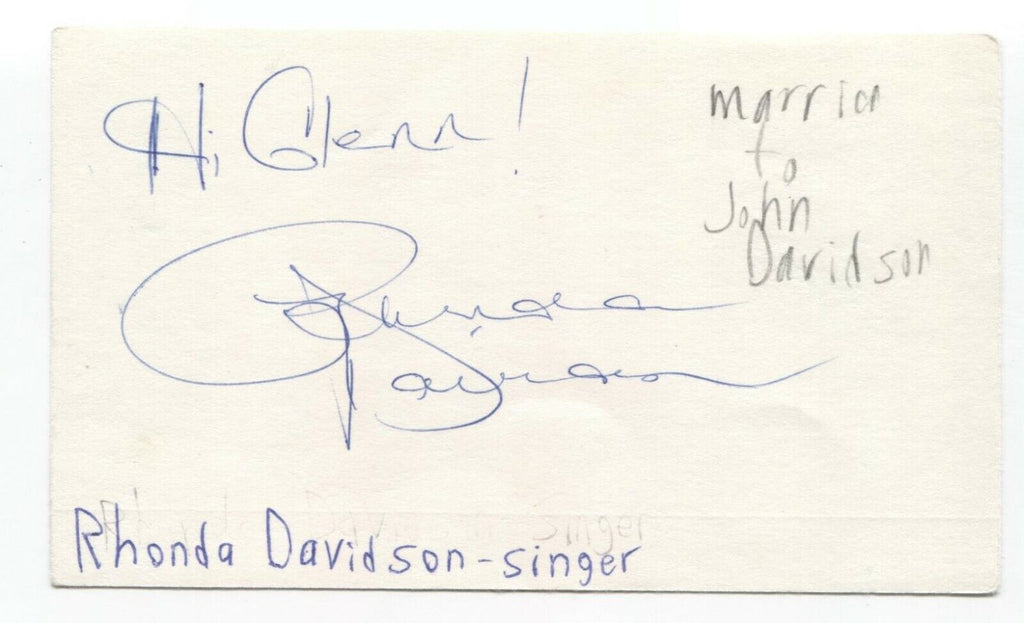 Hi, Glenn!
Rhonda
Davidson
married
to
John
Davidson
Rhonda Davidson-singer
singer